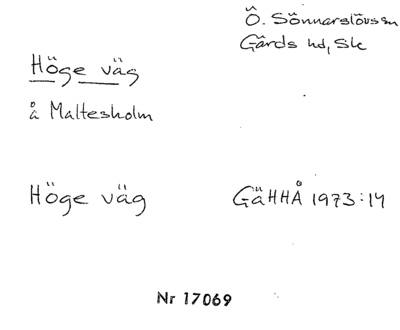 Ö. Sönnarslövs sn
Gärds hd, Sk
Höge väg
å Maltesholm
Höge väg GäHHÅ 1973:14
Nr 17069